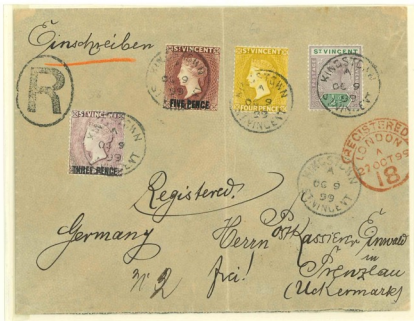 Einschreiben
R
ST VINCENT
FIVE PENCE
ST VINCENT
FOUR PENCE
ST VINCENT
KINGSTOWN
A
OC 9
99
ST. VINCENT
THREE PENCE
REGISTERED
LONDON
A
27 OCT 99
18
KINGSTOWN
A
OC 9
99
ST. VINCENT
Registered.
Germany Herrn Post Kassierer
in
No 2 frei! Prenzlau
(Uckermark)